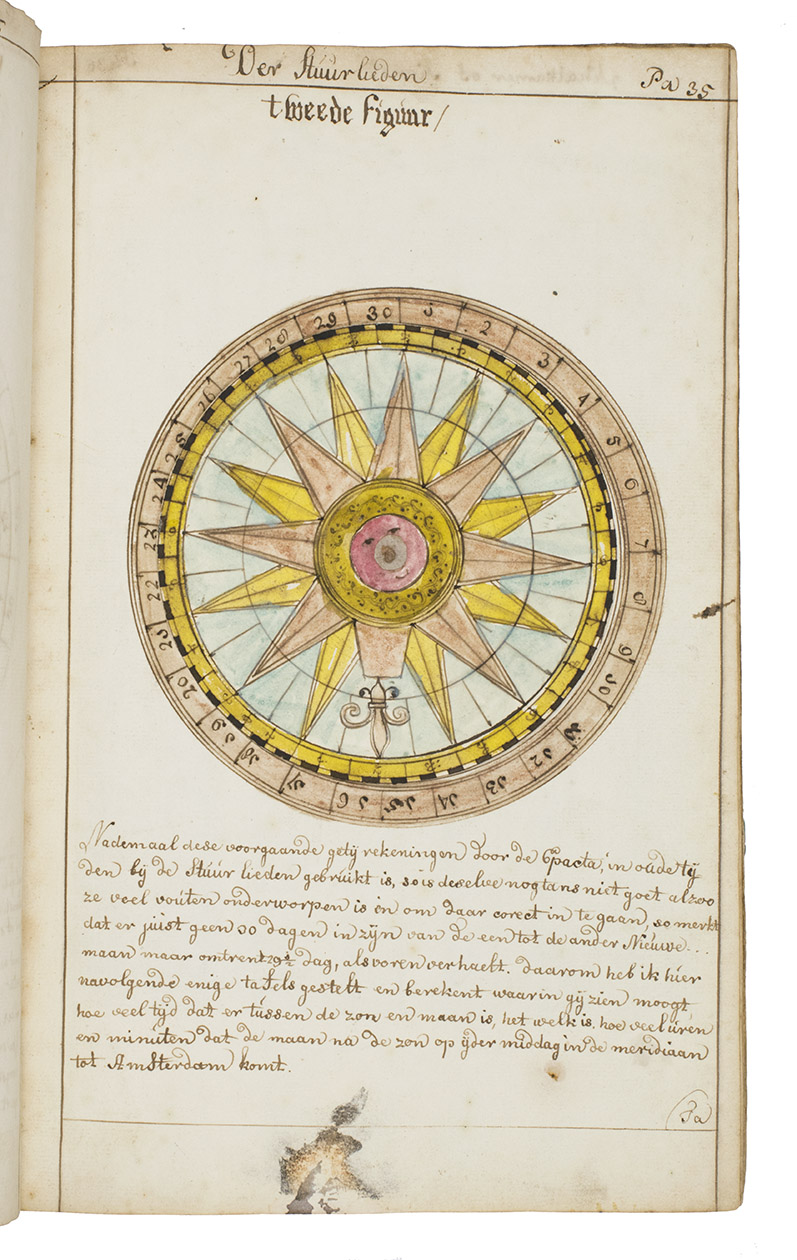 Der Stuurlieden
Pa 35
tweede figuur/
30 1 2 3 4 5 6 7 8 9 10 11 12 13 14 15 16 17 18 19 20 21 22 23 24 25 26 27 28 29
Nademaal dese voorgaande getij rekeningen door de Epacta, in oude tij
den bij de Stuur lieden gebruikt is, so is deselve nogtans niet goet alzoo
ze veel vouten onderworpen is en om daar corect in te gaan, so merkt
dat er juist geen 30 dagen in zijn van de een tot de ander Nieuwe...
maan maar omtrent 29½ dag, als voren verhaelt. daarom heb ik hier
navolgende enige tafels gestelt en berekent waarin gij zien moogt
hoe veel tijd dat er tussen de zon en maan is, het welk is. hoe veel uren
en minuten dat de maan na de zon op ijder middag in de meridiaan
tot Amsterdam komt.
Ta